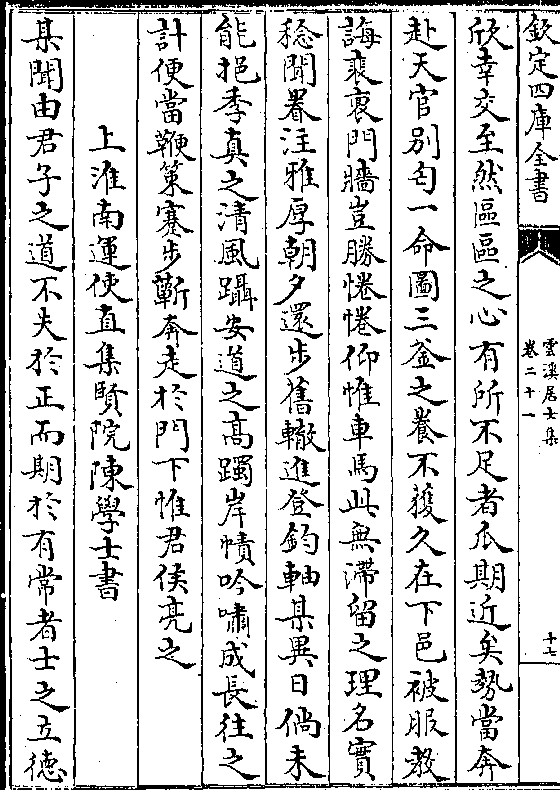 欽定四庫全書
雲溪居士集
卷二十一
十七
欣幸交至然區區之心有所不足者瓜期近矣勢當奔
赴天官别匄一命圖三釜之養不獲久在下邑被服教
誨裴褱門牆豈勝惓惓仰惟車馬此無滯留之理名實
稔聞眷注雅厚朝夕還步舊轍進登鈞軸某異日倘未
能挹季真之清風躡安道之高躅岸幘吟嘯成長往之
計便當鞭策蹇步蘄奔走於門下惟君侯亮之
上淮南運使直集賢院陳學士書
某聞由君子之道不失於正而期於有常者士之立德